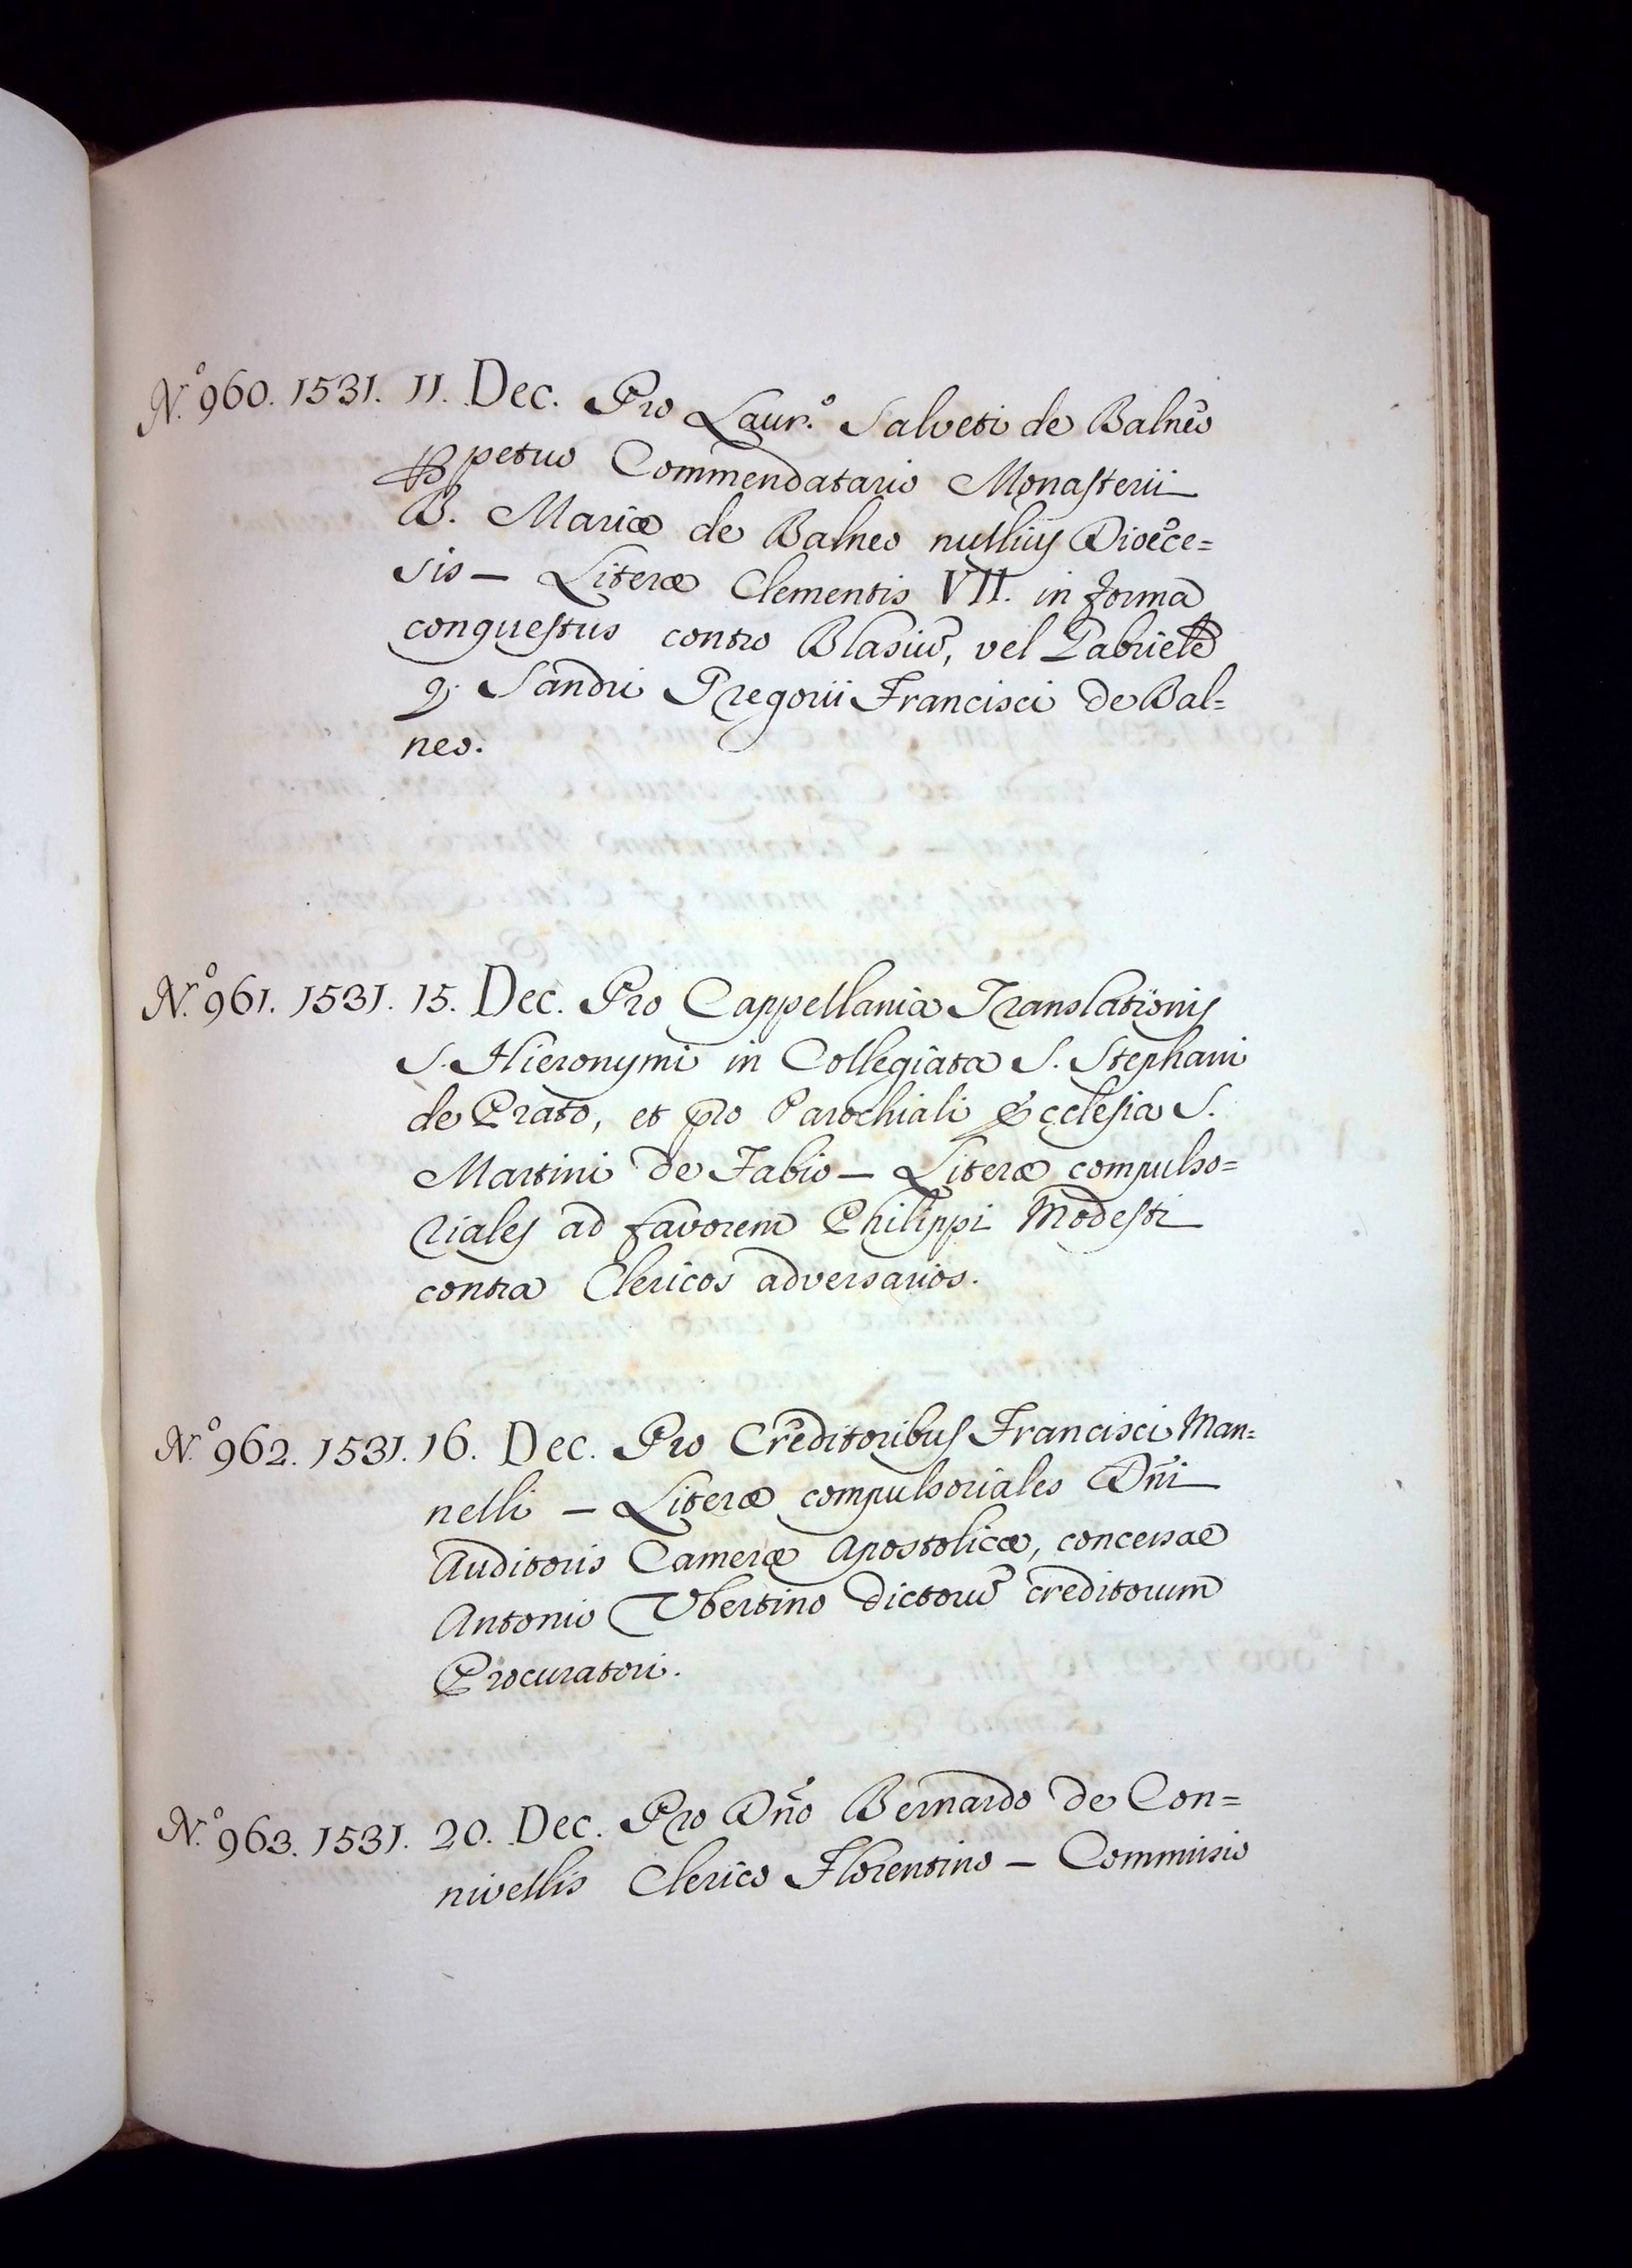 N.º 960. 1531. 11. Dec. Pro Laur.º Salveti de Balneo
ꝑpetuo Commendatario Monasterii
B. Mariæ de Balneo nullius Dioece=
sis — Literæ Clementis VII. in forma
conquestus contro Blasiũ, vel Gabriele
q. Sandri Gregorii Francisci de Bal=
neo.
N.º 961. 1531. 15. Dec. Pro Cappellania Translationis
S. Hieronymi in Collegiata S. Stephani
de Prato, et pro Parochiali Ecclesia S.
Martini de Fabio — Literæ compulso=
riales ad favorem Philippi Modesti
contra Clericos adversarios.
N.º 962. 1531. 16. Dec. Pro Creditoribus Francisci Man=
nelli — Literæ compulsoriales Dñi
Auditoris Cameræ Apostolicæ, concessae
Antonio Vbertino dictorũ creditorum
Procuratori.
N.º 963. 1531. 20. Dec. Pro Dño Bernardo de Con=
nivellis Clerico Florentino — Commisio